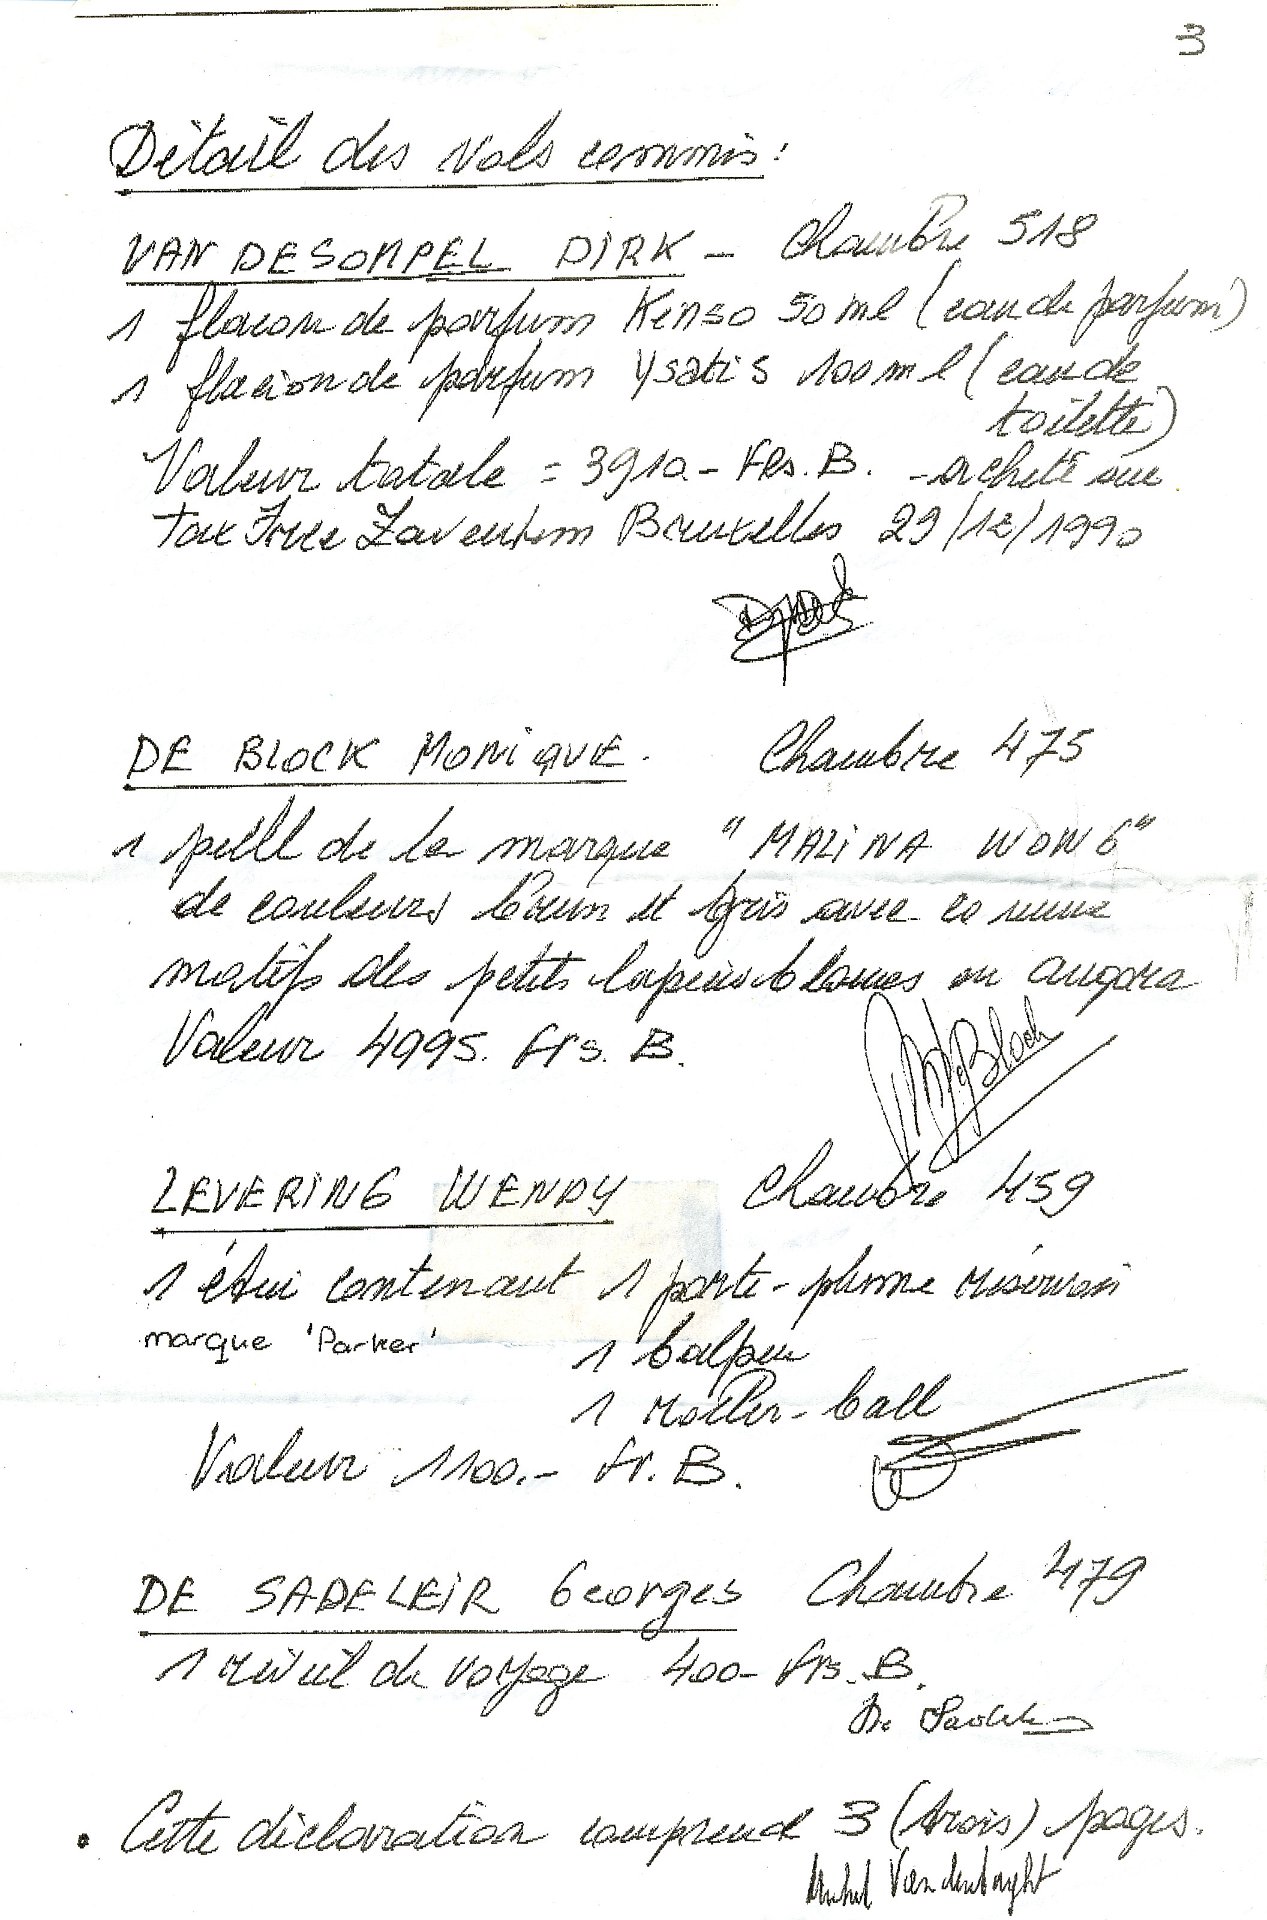 3
Détail des vols commis:
VAN DESOMPEL DIRK - Chambre 518
1 flacon de parfum Kenso 50 ml (eau de parfum)
1 flacion de parfum Ysatis 100 ml (eau de
toilette)
Valeur totale = 3910 - Frs. B. - acheté au
Tax Free Zaventem Bruxelles 29/12/1990
DE BLOCK MONIQUE. Chambre 475
1 pull de la marque "MALINA WONG"
de couleurs brun et gris avec comme
motifs des petits lapins blancs en angora
Valeur 4995. Frs. B.
M De Block
LEVERING WENDY Chambre 459
1 étui contenant 1 porte-plume réservoir
marque 'Parker'
1 balpen
1 roller-ball
Valeur 1100.- Fr. B.
DE SADELEIR Georges Chambre 479
1 réveil de voyage 400- Frs. B.
De Sadel
• Cette déclaration comprend 3 (trois) pages.
Michel